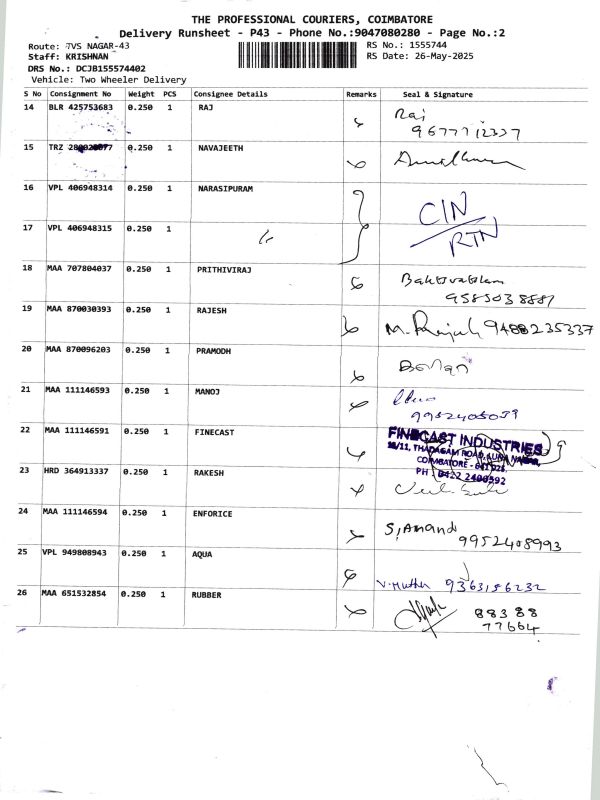 THE PROFESSIONAL COURIERS, COIMBATORE
Delivery Runsheet - P43 - Phone No.:9047080280 - Page No.:2
Route: TVS NAGAR-43
RS No.: 1555744
Staff: KRISHNAN
RS Date: 26-May-2025
DRS No.: DCJB155574402
Vehicle: Two Wheeler Delivery
S No Consignment No Weight PCS Consignee Details Remarks Seal & Signature
14 BLR 425753683 0.250 1 RAJ Raj
9677712337
15 TRZ 0.250 1 NAVAJEETH
16 VPL 406948314 0.250 1 NARASIPURAM CIN
17 VPL 406948315 0.250 1 RTN
18 MAA 707804037 0.250 1 PRITHIVIRAJ
9585038881
19 MAA 870030393 0.250 1 RAJESH M. Rajesh 9488235337
20 MAA 870096203 0.250 1 PRAMODH
21 MAA 111146593 0.250 1 MANOJ
9952405059
22 MAA 111146591 0.250 1 FINECAST FINECAST INDUSTRIES
COIMBATORE - 641 025.
PH : 0422 2400392
23 HRD 364913337 0.250 1 RAKESH
24 MAA 111146594 0.250 1 ENFORICE S. Anand
9952408993
25 VPL 949808943 0.250 1 AQUA V. Muthu 9363156232
26 MAA 651532854 0.250 1 RUBBER 88388
77664